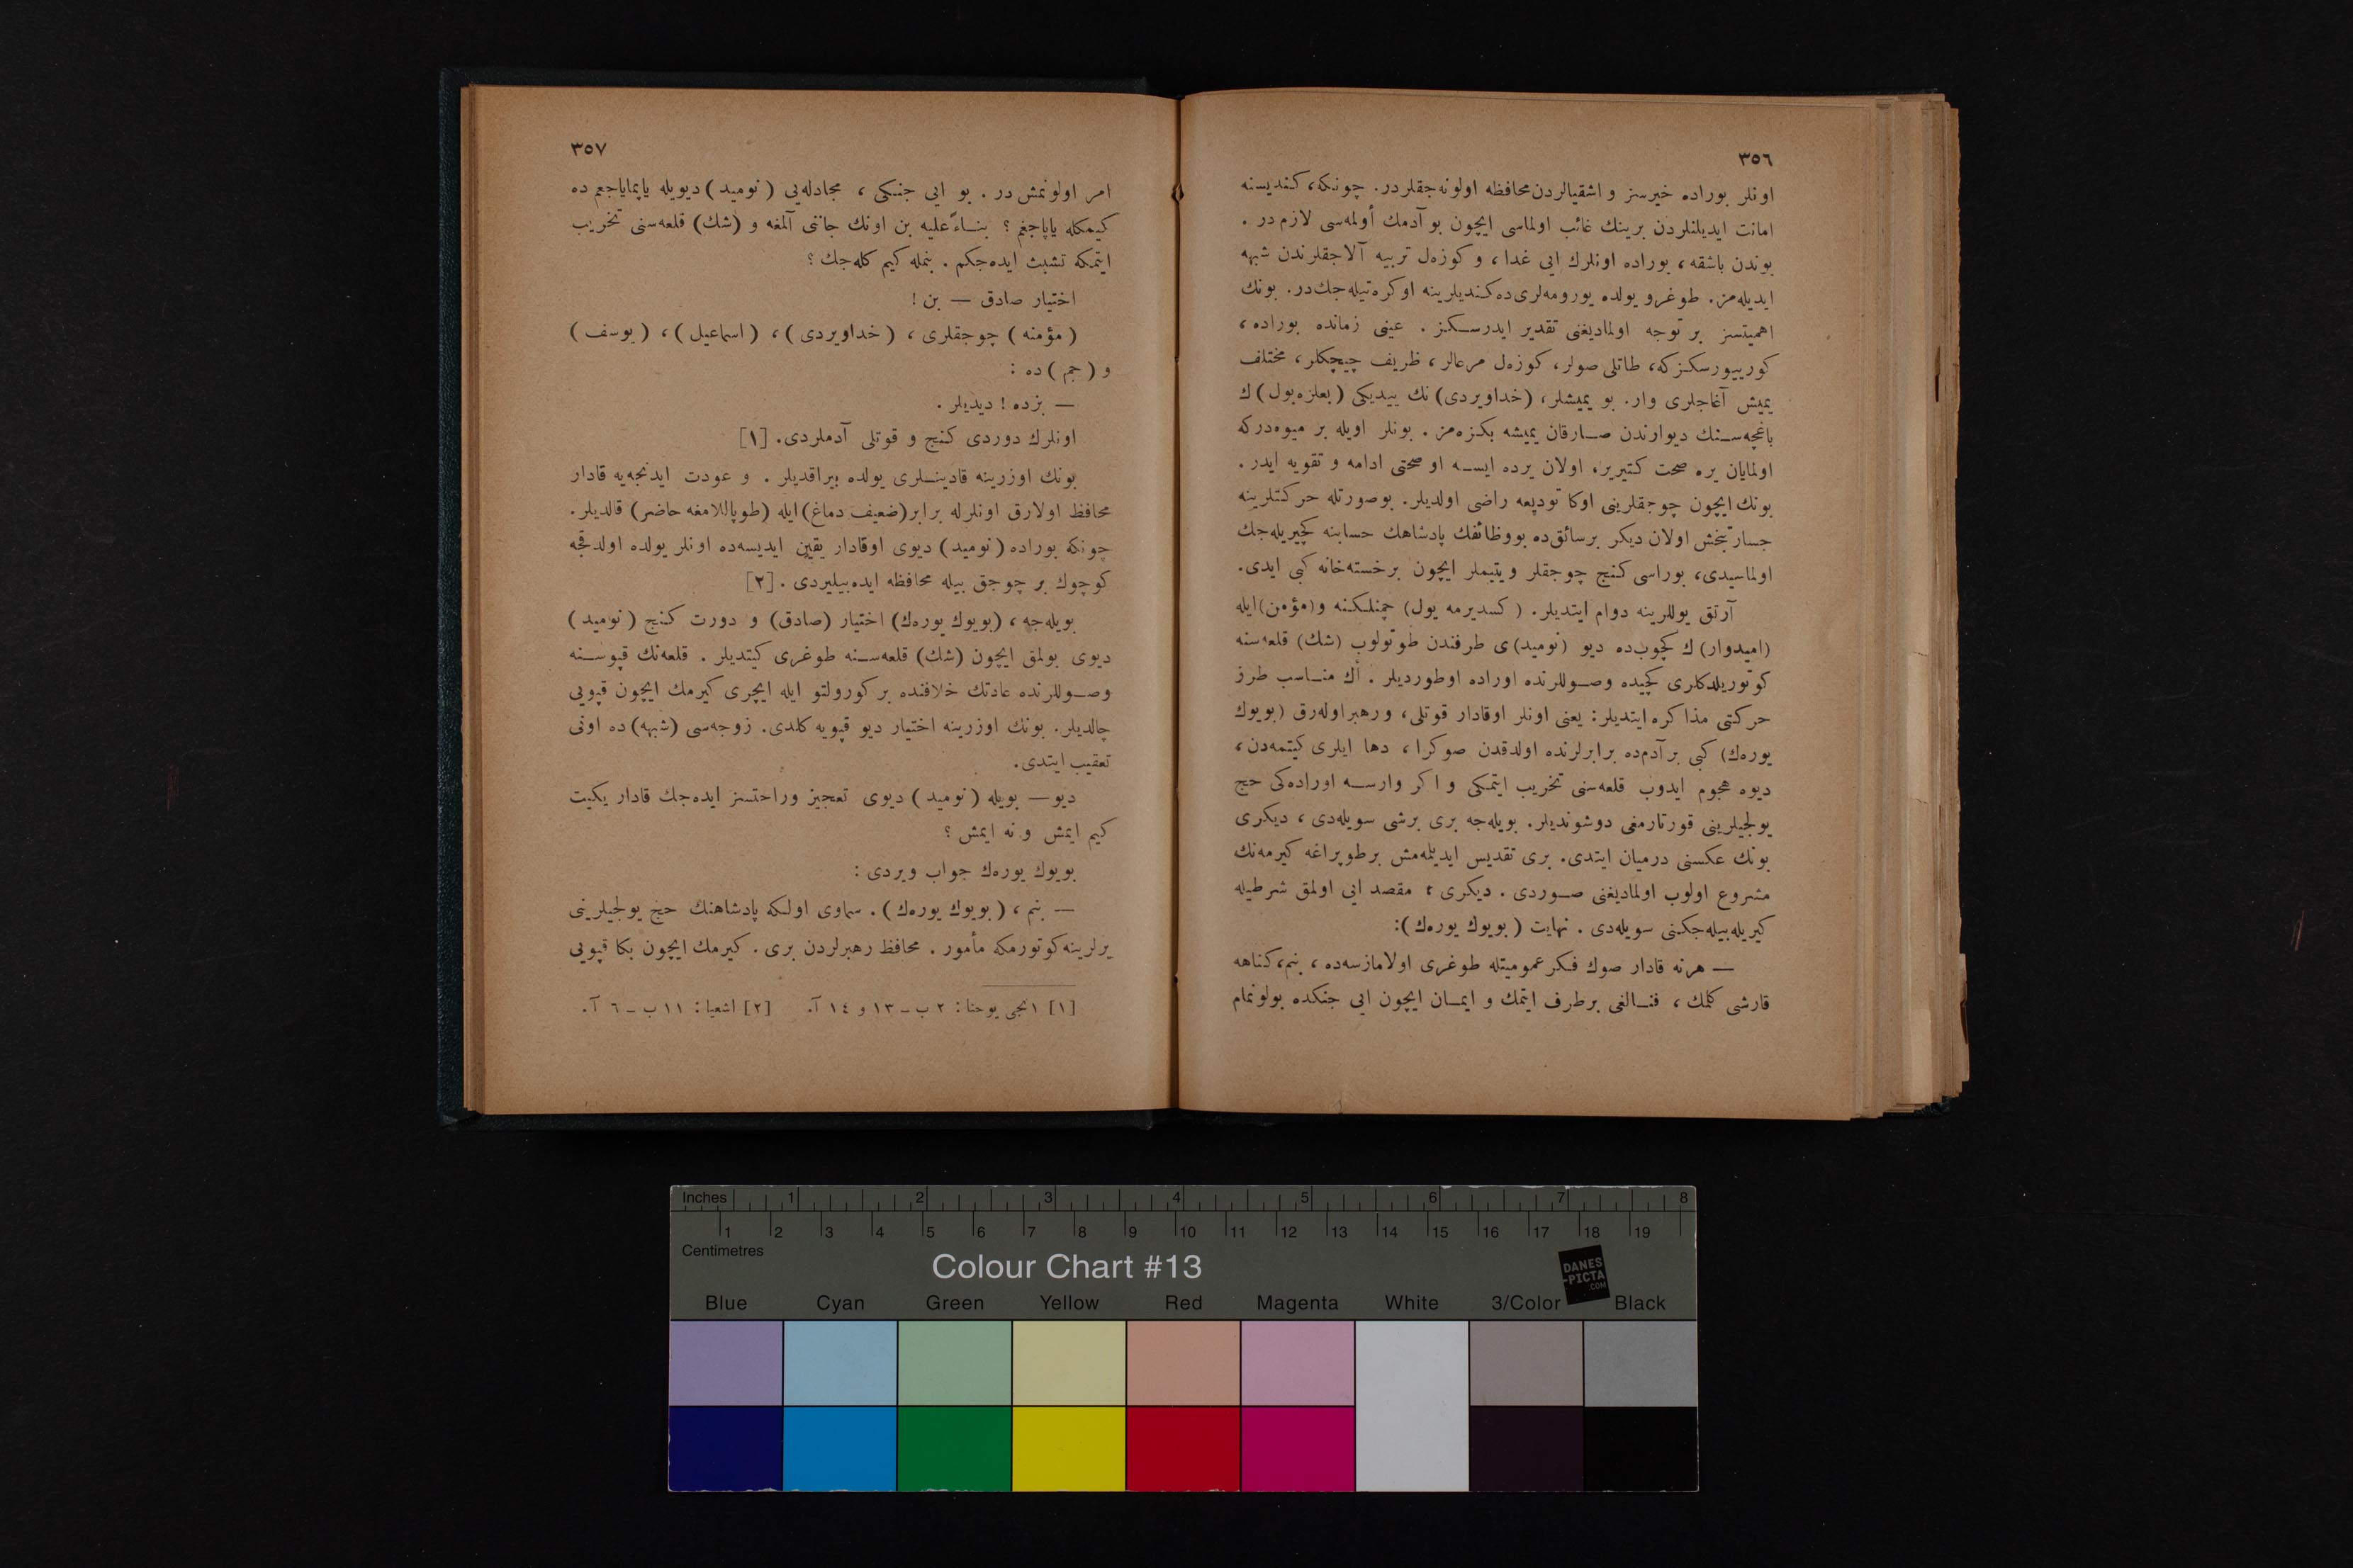 ٣٥٦
اونلر بوراده خيرسز و اشقيالردن محافظه اولونه جقلردر. چونكه، كنديسنه
امانت ايديلنلردن برينك غائب اولماسى ايچون بو آدمك أولمه‌سى لازم در .
بوندن باشقه، بوراده اونلرك ايى غدا، و كوزه‌ل تربيه آلاجقلرندن شبهه
ايديله‌مز. طوغرو يولده يورومه‌لرى ده كنديلرينه اوكره‌تيله‌جك در. بونك
اهميتسز بر توجه اولماديغنى تقدير ايدرسكز . عينى زمانده بوراده،
كورييورسكز كه، طاتلى صولر، كوزه‌ل مرعالر، ظريف چيچكلر، مختلف
يميش آغاجلرى وار. بو يميشلر، (خداويردى) نك ييديكى (بعلزه‌بول) ك
باغچه‌سنك ديوارندن صارقان يميشه بكزه‌مز . بونلر اويله بر ميوه‌دركه
اولمايان يره صحت كتيرير، اولان يرده ايسه او صحتى ادامه و تقويه ايدر.
بونك ايچون چوجقلرينى اوكا توديعه راضى اولديلر. بوصورتله حركتلرينه
جسارتبخش اولان ديكر برسائق ده بووظائفك پادشاهك حسابنه كچيريله‌جك
اولماسيدى، بوراسى كنج چوجقلر و يتيملر ايچون برخسته‌خانه كبى ايدى.
آرتق يوللرينه دوام ايتديلر. (كسديرمه يول) چمنلكنه و(مؤمن) ايله
(اميدوار) ك كچوب‌ده ديو (نوميد) ى طرفندن طوتولوب (شك) قلعه‌سنه
كوتوريلدكلرى كچيده وصوللرنده اوراده اوطورديلر . أك مناسب طرز
حركتى مذاكره ايتديلر: يعنى اونلر اوقادار قوتلى، و رهبر اوله‌رق (بويوك
يوره‌ك) كبى بر آدم‌ده برابرلرنده اولدقدن صوكرا، دها ايلرى كيتمه‌دن،
ديوه هجوم ايدوب قلعه‌سنى تخريب ايتمكى و اكر وارسه اوراده‌كى حج
يولجيلرينى قورتارمغى دوشونديلر. بويله‌جه برى برشى سويله‌دى، ديكرى
بونك عكسنى درميان ايتدى. برى تقديس ايديلمه‌مش برطوپراغه كيرمه‌نك
مشروع اولوب اولماديغنى صوردى . ديكرى ؛ مقصد ايى اولمق شرطيله
كيريله‌بيله‌جكنى سويله‌دى . نهايت (بويوك يوره‌ك):
— هرنه قادار صوك فكر عموميتله طوغرى اولامازسه‌ده ، بنم، كناهه
قارشى كلمك ، فنالغى برطرف ايتمك و ايمان ايچون ايى جنكده بولونمام
٣٥٧
امر اولونمش در . بو ايى جنكى ، مجادله‌يى (نوميد) ديويله ياپماياجغم ده
كيمكله ياپاجغم ؟ بناءً عليه بن اونك جاننى آلمغه و (شك) قلعه‌سنى تخريب
ايتمكه تشبث ايده‌جكم . بنمله كيم كله‌جك ؟
اختيار صادق — بن !
(مؤمنه) چوجقلرى ، (خداويردى) ، (اسماعيل) ، (يوسف)
و (جم) ده :
— بزده ! ديديلر .
اونلرك دوردى كنج و قوتلى آدملردى. [١]
بونك اوزرينه قادينلرى يولده بيراقديلر . و عودت ايدنجه‌يه قادار
محافظ اولارق اونلرله برابر (ضعيف دماغ) ايله (طوپاللامغه حاضر) قالديلر.
چونكه بوراده (نوميد) ديوى اوقادار يقين ايديسه‌ده اونلر يولده اولدقجه
كوچوك بر چوجق بيله محافظه ايده‌بيليردى . [٢]
بويله‌جه ، (بويوك يوره‌ك) اختيار (صادق) و دورت كنج (نوميد)
ديوى بولمق ايچون (شك) قلعه‌سنه طوغرى كيتديلر . قلعه‌نك قپوسنه
وصوللرنده عادتك خلافنده بر كورولتو ايله ايچرى كيرمك ايچون قپويى
چالديلر. بونك اوزرينه اختيار ديو قپويه كلدى. زوجه‌سى (شبهه) ده اونى
تعقيب ايتدى.
ديو — بويله (نوميد) ديوى تعجيز وراحتسز ايده‌جك قادار يكيت
كيم ايمش و نه ايمش ؟
بويوك يوره‌ك جواب ويردى :
— بنم ، (بويوك يوره‌ك) . سماوى اولكه پادشاهنك حج يولجيلرينى
يرلرينه كوتورمكه مأمور . محافظ رهبرلردن برى . كيرمك ايچون بكا قپويى
[١] ١نجى يوحنا: ٢ ب ـ ١٣ و ١٤ آ. [٢] اشعيا: ١١ ب ـ ٦ آ.
Inches 1 2 3 4 5 6 7 8
1 2 3 4 5 6 7 8 9 10 11 12 13 14 15 16 17 18 19
Centimetres
Colour Chart #13
DANES
-PICTA
.COM
Blue Cyan Green Yellow Red Magenta White 3/Color Black